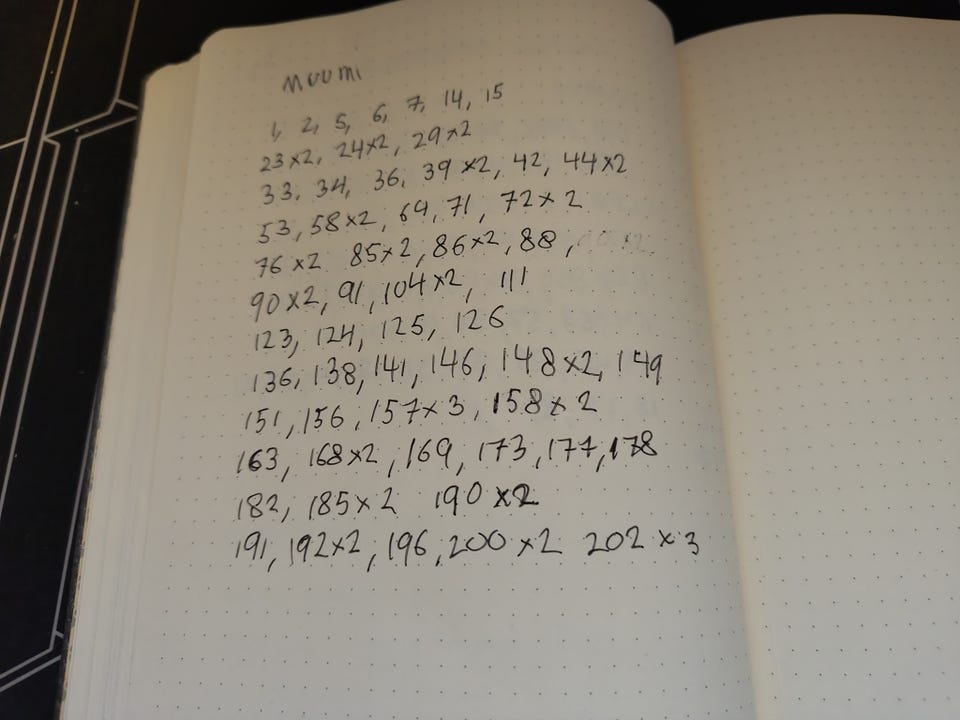 MUUMI
1, 2, 5, 6, 7, 14, 15
23x2, 24x2, 29x2
33, 34, 36, 39x2, 42, 44x2
53, 58x2, 69, 71, 72x2
76x2 85x2, 86x2, 88,
90x2, 91, 104x2, 111
123, 124, 125, 126
136, 138, 141, 146, 148x2, 149
151, 156, 157x3, 158x2
163, 168x2, 169, 173, 177, 178
182, 185x2 190x2
191, 192x2, 196, 200x2 202x3